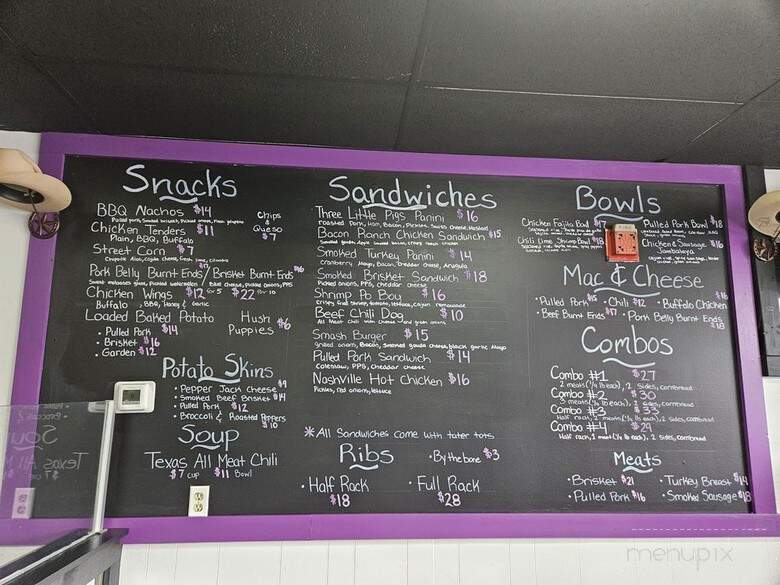 Snacks
BBQ Nachos $14
Chips
&
Queso
$7
Chicken Tenders $11
Plain, BBQ, Buffalo
Street Corn $7
Pork Belly Burnt Ends / Brisket Burnt Ends
Chicken Wings $12 for 5 $22 for 10
Buffalo, BBQ, Honey & Garlic
Loaded Baked Potato
• Pulled Pork $14
• Brisket $16
• Garden $12
Hush
Puppies $6
Potato Skins
• Pepper Jack Cheese $9
• Smoked Beef Brisket $14
• Pulled Pork $12
• Broccoli & Roasted Peppers
$10
Soup
Texas All Meat Chili
$7 cup $11 Bowl
Sandwiches
Three Little Pigs Panini $16
Roasted Pork, Ham, Bacon, Pickles, Swiss Cheese, Mustard
Bacon Ranch Chicken Sandwich $15
Smoked Turkey Panini $14
Cranberry Mayo, Bacon, Cheddar Cheese, Arugula
Smoked Brisket Sandwich $18
Pickled onions, PPS, cheddar cheese
Shrimp Po Boy $16
Beef Chili Dog $10
All Meat Chili with cheese and green onions
Smash Burger $15
grilled onions, Bacon, Smoked gouda cheese, black garlic Mayo
Pulled Pork Sandwich $14
Coleslaw, PPS, Cheddar cheese
Nashville Hot Chicken $16
Pickles, red onions, lettuce
*All Sandwiches come with tater tots
Ribs
• By the bone $3
• Half Rack
$18
• Full Rack
$28
Bowls
Chicken Fajita Bowl
Pulled Pork Bowl $18
Chili Lime Shrimp Bowl
Chicken & Sausage $16
Jambalaya
FIRE
Mac & Cheese
• Pulled Pork $15 • Chili $12 • Buffalo Chicken
$16
• Beef Burnt Ends $17 • Pork Belly Burnt Ends
$18
Combos
Combo #1 $27
2 meats (1/4 lb each), 2 sides, cornbread
Combo #2 $30
3 meats (1/4 lb each), 2 sides, cornbread
Combo #3 $33
Half rack, 2 meats (1/4 lb each), 2 sides, cornbread
Combo #4 $29
Half rack, 1 meat (1/4 lb each), 2 sides, cornbread
Meats
• Brisket $21 • Turkey Breast $14
• Pulled Pork $16 • Smoked Sausage $18
menupix